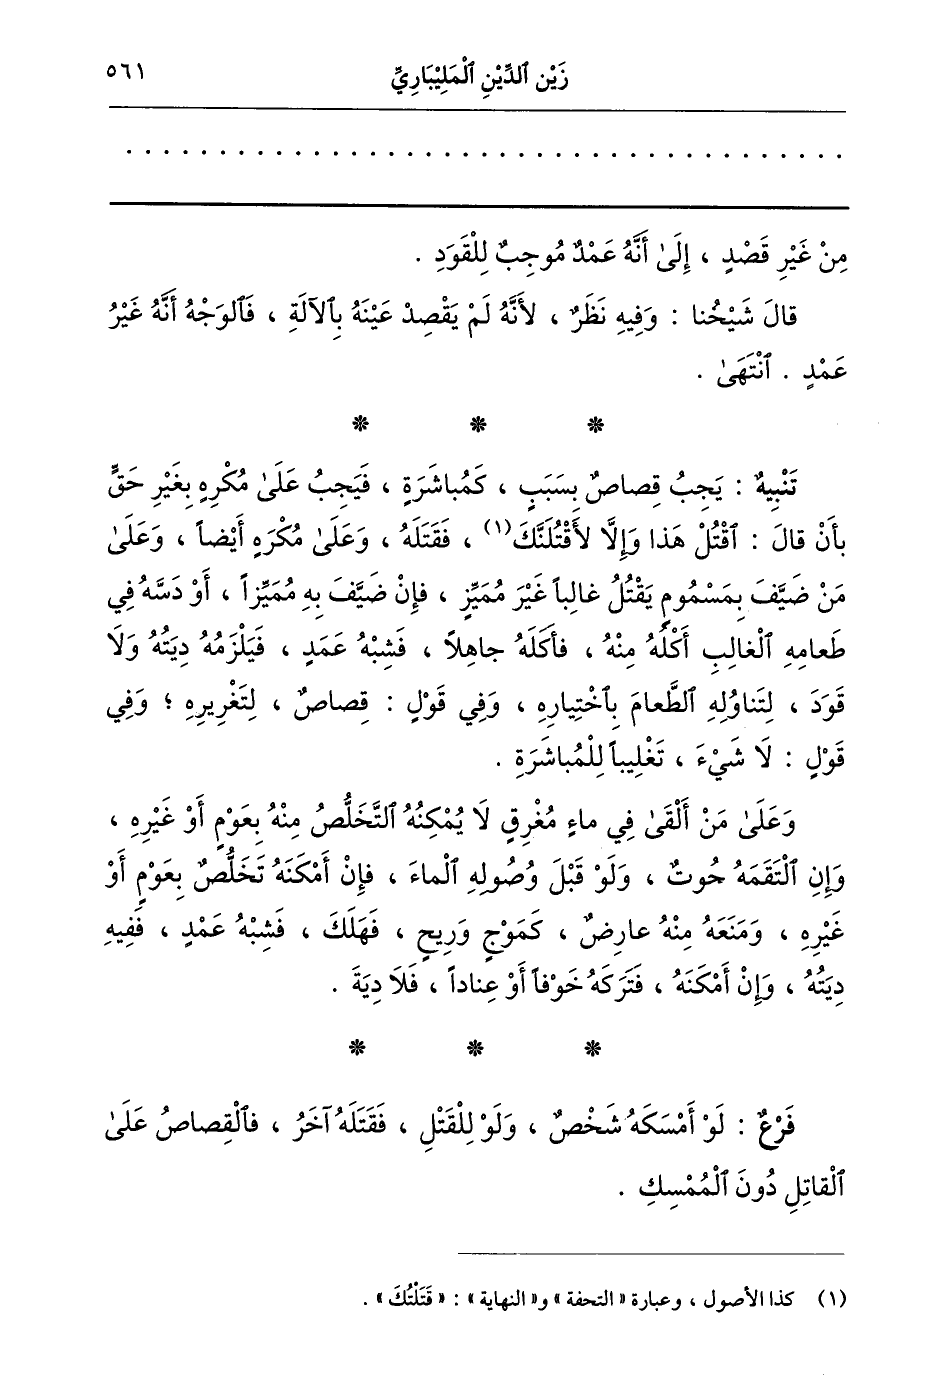 زَيْن ٱلدِّيْنِ ٱلْمَلِيْبَارِيِّ ٥٦١
. . . . . . . . . . . . . . . . . . . . . . . . . . . . . . . . . . . . . .
مِنْ غَيْرِ قَصْدٍ ، إِلَىٰ أَنَّهُ عَمْدٌ مُوجِبٌ لِلْقَوَدِ .
قالَ شَيْخُنا : وَفِيهِ نَظَرٌ ، لأَنَّهُ لَمْ يَقْصِدْ عَيْنَهُ بِٱلآلَةِ ، فَٱلوَجْهُ أَنَّهُ غَيْرُ
عَمْدٍ . ٱنْتَهَىٰ .
* * *
تَنْبِيهٌ : يَجِبُ قِصاصٌ بِسَبَبٍ ، كَمُباشَرَةٍ ، فَيَجِبُ عَلَىٰ مُكْرِهٍ بِغَيْرِ حَقٍّ
بِأَنْ قالَ : ٱقْتُلْ هَذا وَإِلَّا لأَقْتُلَنَّكَ (١) ، فَقَتَلَهُ ، وَعَلَىٰ مُكْرَهٍ أَيْضاً ، وَعَلَىٰ
مَنْ ضَيَّفَ بِمَسْمُومٍ يَقْتُلُ غالِباً غَيْرَ مُمَيِّزٍ ، فإِنْ ضَيَّفَ بِهِ مُمَيِّزاً ، أَوْ دَسَّهُ فِي
طَعامِهِ ٱلْغالِبِ أَكْلُهُ مِنْهُ ، فأَكَلَهُ جاهِلاً ، فَشِبْهُ عَمَدٍ ، فَيَلْزَمُهُ دِيَتُهُ وَلَا
قَوَدَ ، لِتَناوُلِهِ ٱلطَّعامَ بِٱخْتِيارِهِ ، وَفِي قَوْلٍ : قِصاصٌ ، لِتَغْرِيرِهِ ؛ وَفِي
قَوْلٍ : لَا شَيْءَ ، تَغْلِيباً لِلْمُباشَرَةِ .
وَعَلَىٰ مَنْ أَلْقَىٰ فِي ماءٍ مُغْرِقٍ لَا يُمْكِنُهُ ٱلتَّخَلُّصُ مِنْهُ بِعَوْمٍ أَوْ غَيْرِهِ ،
وَإِنِ ٱلْتَقَمَهُ حُوتٌ ، وَلَوْ قَبْلَ وُصُولِهِ ٱلْماءَ ، فإِنْ أَمْكَنَهُ تَخَلُّصٌ بِعَوْمٍ أَوْ
غَيْرِهِ ، وَمَنَعَهُ مِنْهُ عارِضٌ ، كَمَوْجٍ وَرِيحٍ ، فَهَلَكَ ، فَشِبْهُ عَمْدٍ ، فَفِيهِ
دِيَتُهُ ، وَإِنْ أَمْكَنَهُ ، فَتَرَكَهُ خَوْفاً أَوْ عِناداً ، فَلَا دِيَةَ .
* * *
فَرْعٌ : لَوْ أَمْسَكَهُ شَخْصٌ ، وَلَوْ لِلْقَتْلِ ، فَقَتَلَهُ آخَرُ ، فٱلْقِصاصُ عَلَىٰ
ٱلْقاتِلِ دُونَ ٱلْمُمْسِكِ .
(١) كذا الأصول ، وعبارة « التحفة » و« النهاية » : « قَتَلْتُكَ » .